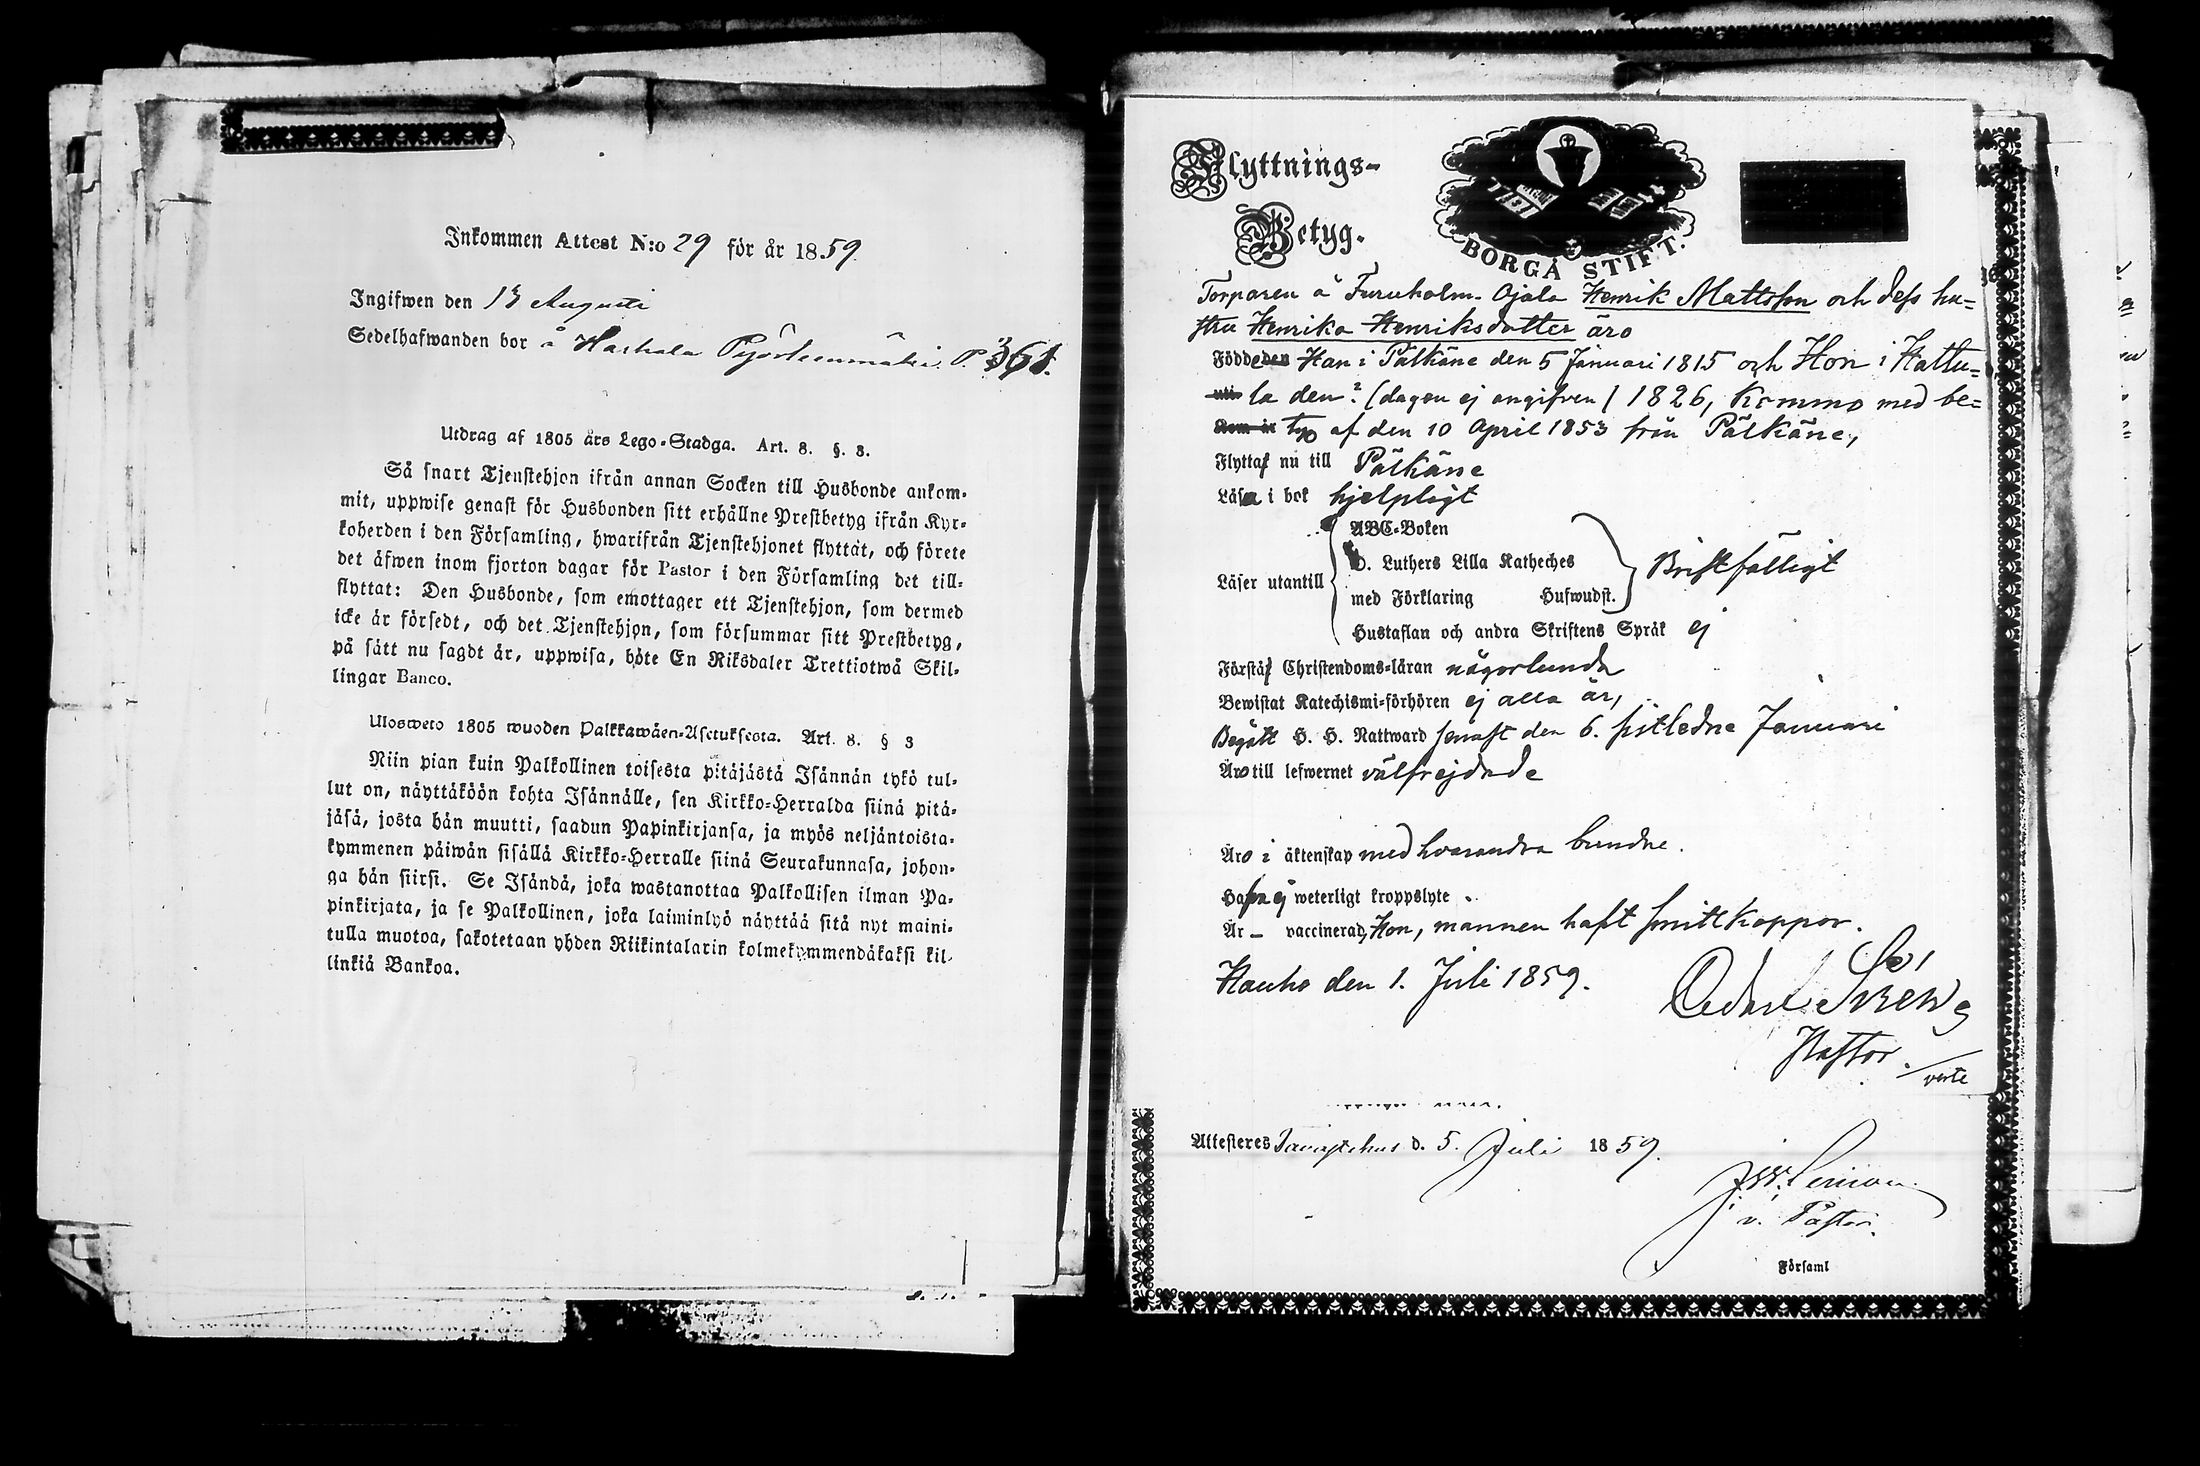 Inkommen Attest N:o 29 för år 1859.
Ingifwen den 13 Augusti
Sedelhafwanden bor å Harhala P. 361.
Utdrag af 1805 års Lego-Stadga. Art. 8. §. 3.
Så snart Tjenstehjon ifrån annan Socken till Husbonde ankom-
mit, uppwise genast för Husbonden sitt erhållne Prestbetyg ifrån Kyr-
koherden i den Församling, hwarifrån Tjenstehjonet flyttat, och förete
det äfwen inom fjorton dagar för Pastor i den Församling det till-
flyttat: Den Husbonde, som emottager ett Tjenstehjon, som dermed
icke är försedt, och det Tjenstehjon, som försummar sitt Prestbetyg,
på sätt nu sagdt är, uppwisa, böte En Riksdaler Trettiotwå Skil-
lingar Banco.
Ulosweto 1805 wuoden Palkkawäen-Asetuksesta. Art. 8. § 3
Niin pian kuin Palkollinen toisesta pitäjästä Isännän tykö tul-
lut on, näyttäköön kohta Isännälle, sen Kirkko-Herralda siinä pitä-
jäsä, josta hän muutti, saadun Papinkirjansa, ja myös neljäntoista-
kymmenen päiwän sisällä Kirkko-Herralle siinä Seurakunnasa, johon-
ga hän siirsi. Se Isändä, joka wastanottaa Palkollisen ilman Pa-
pinkirjata, ja se Palkollinen, joka laiminlyö näyttää sitä nyt maini-
tulla muotoa, sakotetaan yhden Riikintalarin kolmekymmendäkaksi kil-
linkiä Bankoa.
Flyttnings-
Betyg.
BORGÅ STIFT.
Torparen å Furuholm Ojala Henrik Mattsson och dess hu-
stru Henrika Henriksdotter äro
Födde den Han i Pälkäne den 5 Januari 1815 och Hon i Hattu-
la den ? (dagen ej angifven) 1826, komna med be-
tyg af den 10 April 1853 från Pälkäne,
Flytta nu till Pälkäne
Läsa i bok hjelpligt
Läser utantill
ABC-Boken
D. Luthers Lilla Katheches
med Förklaring Hufwudst.
Bristfälligt
Hustaflan och andra Skriftens Språk ej
Förstå Christendoms-läran någorlunda
Bewistat Katechismi-förhören ej alla år,
Begått H. H. Nattward senast den 6. sistledne Januari
Äro till lefwernet välfrejdade
Äro i äktenskap med hvarandra bundne.
Hafva ej weterligt kroppslyte.
Är – vaccinerad, Hon, mannen haft smittkoppor.
Hauho den 1. Juli 1859.
Pastor.
verte
Attesteres Tavastehus d. 5. Juli 1859.
v. Pastor.
Församl